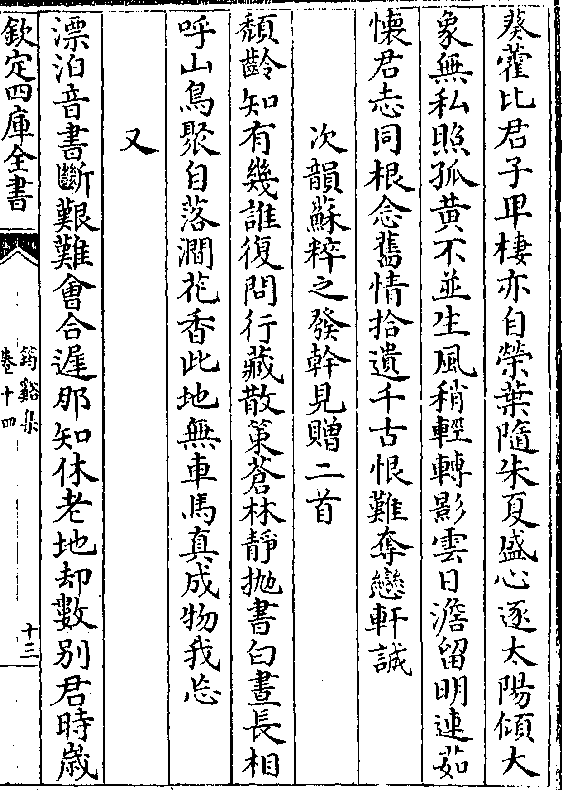 葵藿比君子卑棲亦自榮葉隨朱夏盛心逐太陽傾大
象無私照孤黃不並生風稍輕轉影雲日澹留明連茹
懐君志同根念舊情拾遺千古恨難奪戀軒誠
次韻蘇粹之發幹見贈二首
頽齡知有幾誰復問行藏散策蒼林靜抛書白晝長相
呼山鳥聚自落澗花香此地無車馬真成物我忘
又
漂泊音書斷艱難會合遲那知休老地却數别君時歳
欽定四庫全書
筠谿集
卷十四
十三